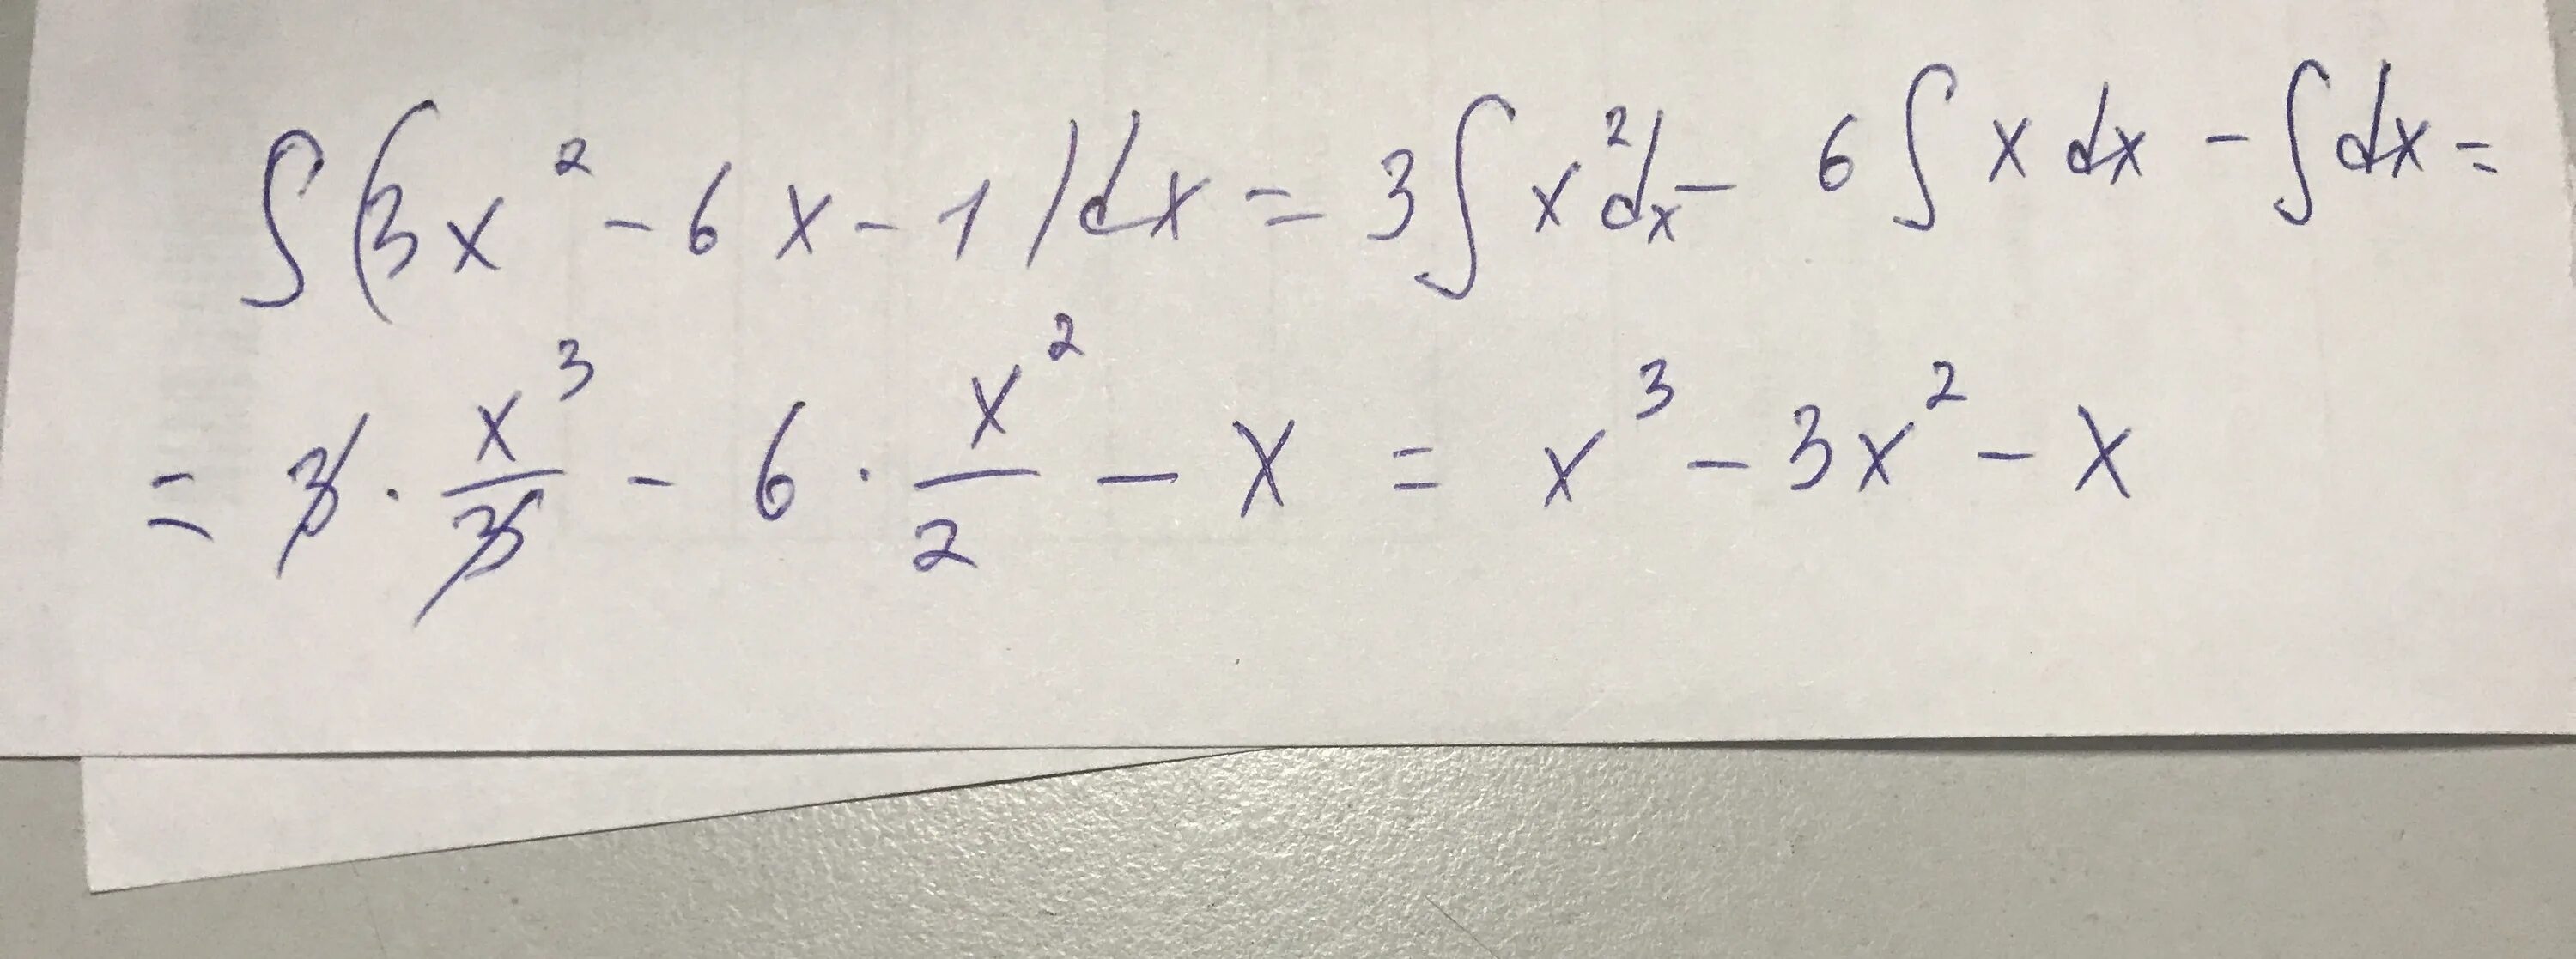 ∫(3x² - 6x - 1)dx = 3∫x²dx - 6∫x dx - ∫dx =
= 3 · x³/3 - 6 · x²/2 - x = x³ - 3x² - x